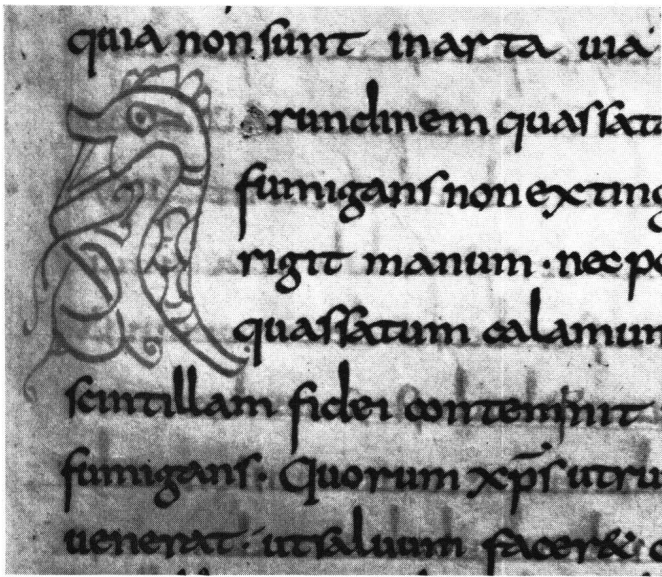 qua non sunt in arta uia
Arundinem quassata
fumigans non exting
rigit manum · nec po
quassatum calamum
scintillam fidei contemnit
fumigans · Quorum xp̄s utru
uenerat · ut saluum facer&